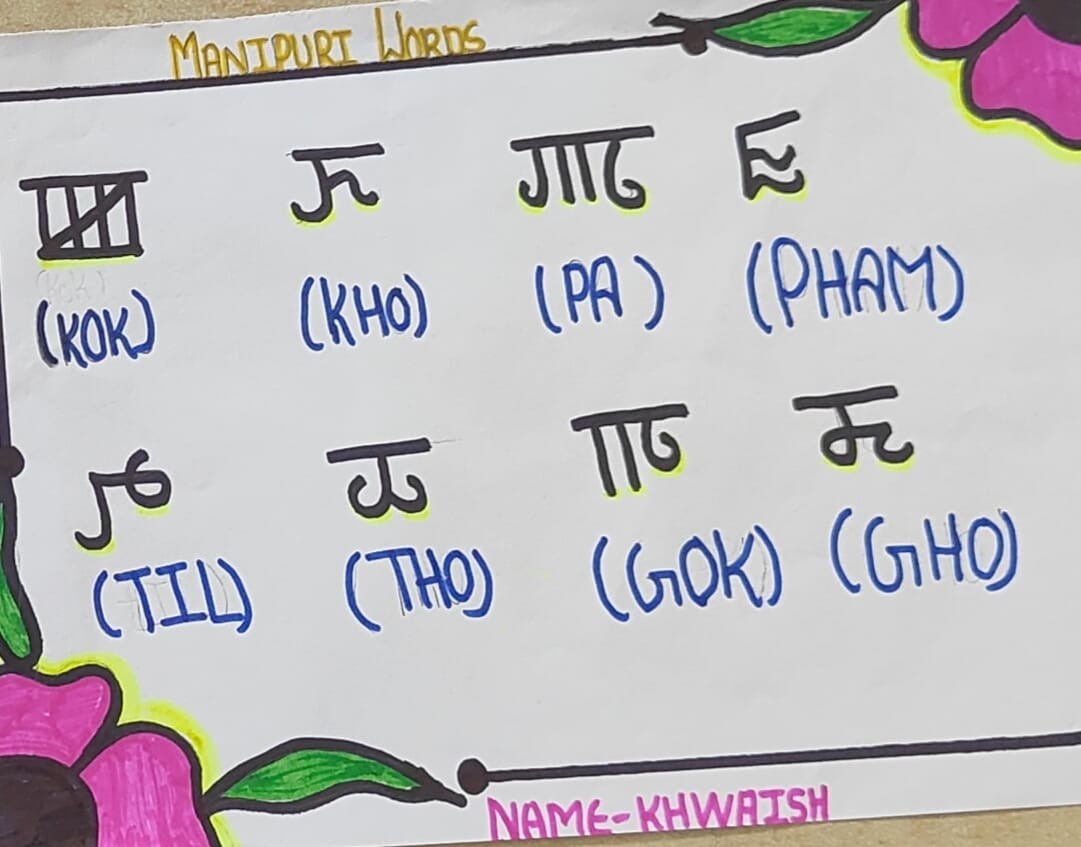 MANIPURI WORDS
ꯀ ꯈ ꯄ ꯐ
(KOK) (KHO) (PA) (PHAM)
ꯇ ꯊ ꯒ ꯘ
(TIL) (THO) (GOK) (GHO)
NAME-KHWAISH